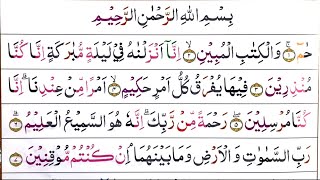 بِسْمِ اللهِ الرَّحْمٰنِ الرَّحِيْمِ
حٰمٓ ﴿١﴾ وَالْكِتٰبِ الْمُبِيْنِ ﴿٢﴾ اِنَّآ اَنْزَلْنٰهُ فِيْ لَيْلَةٍ مُّبٰرَكَةٍ اِنَّا كُنَّا
مُنْذِرِيْنَ ﴿٣﴾ فِيْهَا يُفْرَقُ كُلُّ اَمْرٍ حَكِيْمٍ ﴿٤﴾ اَمْرًا مِّنْ عِنْدِنَا ؕ اِنَّا
كُنَّا مُرْسِلِيْنَ ﴿٥﴾ رَحْمَةً مِّنْ رَّبِّكَ ؕ اِنَّهٗ هُوَ السَّمِيْعُ الْعَلِيْمُ ﴿٦﴾
رَبِّ السَّمٰوٰتِ وَالْاَرْضِ وَمَا بَيْنَهُمَا ۘ اِنْ كُنْتُمْ مُّوْقِنِيْنَ ﴿٧﴾